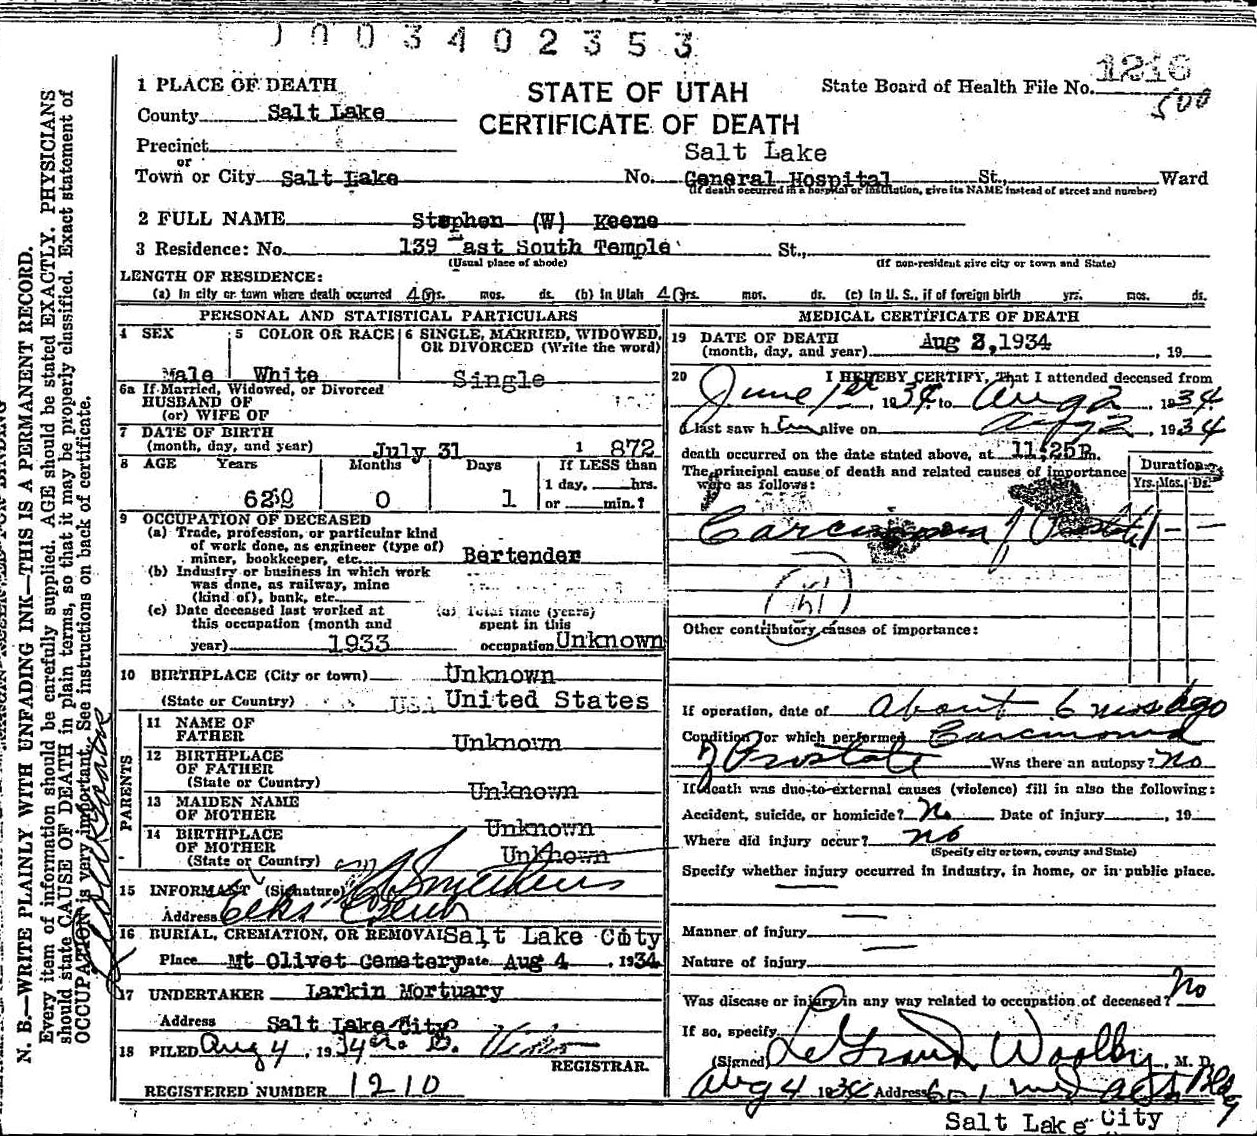 0003402353
1216
500
1 PLACE OF DEATH
STATE OF UTAH
CERTIFICATE OF DEATH
State Board of Health File No.
County Salt Lake
Precinct
or
Town or City Salt Lake No. Salt Lake General Hospital St., Ward
(If death occurred in a hospital or institution, give its NAME instead of street and number)
2 FULL NAME Stephen (W) Keene
3 Residence: No. 139 East South Temple St.,
(Usual place of abode) (If non-resident give city or town and State)
LENGTH OF RESIDENCE:
(a) In city or town where death occurred 40 yrs. mos. ds. (b) In Utah 40 yrs. mos. ds. (c) In U. S., if of foreign birth yrs. mos. ds.
PERSONAL AND STATISTICAL PARTICULARS
4 SEX Male
5 COLOR OR RACE White
6 SINGLE, MARRIED, WIDOWED, OR DIVORCED (Write the word) Single
6a If Married, Widowed, or Divorced
HUSBAND OF
(or) WIFE OF
7 DATE OF BIRTH
(month, day, and year) July 31 1872
8 AGE Years Months Days If LESS than
1 day, hrs.
62 0 1 or min.?
9 OCCUPATION OF DECEASED
(a) Trade, profession, or particular kind
of work done, as engineer (type of)
miner, bookkeeper, etc. Bartender
(b) Industry or business in which work
was done, as railway, mine
(kind of), bank, etc.
(c) Date deceased last worked at
this occupation (month and
year) 1933
(d) Total time (years)
spent in this
occupation Unknown
10 BIRTHPLACE (City or town) Unknown
(State or Country) USA United States
PARENTS
11 NAME OF
FATHER Unknown
12 BIRTHPLACE
OF FATHER
(State or Country) Unknown
13 MAIDEN NAME
OF MOTHER Unknown
14 BIRTHPLACE
OF MOTHER
(State or Country) Unknown
15 INFORMANT (Signature)
Address Elks Club
16 BURIAL, CREMATION, OR REMOVAL Salt Lake City
Place Mt Olivet Cemetery Date Aug 4, 1934
17 UNDERTAKER Larkin Mortuary
Address Salt Lake City
18 FILED Aug 4, 1934
REGISTRAR.
REGISTERED NUMBER 1210
MEDICAL CERTIFICATE OF DEATH
19 DATE OF DEATH
(month, day, and year) Aug 2, 1934, 19
20 I HEREBY CERTIFY, That I attended deceased from
June 1st, 1934 to Aug 2, 1934.
I last saw h im alive on Aug 2, 1934
death occurred on the date stated above, at 11:25P m.
The principal cause of death and related causes of importance
were as follows:
Duration
Yrs. Mos. Ds.
Carcinoma of Prostate 1 – –
Other contributory causes of importance:
If operation, date of About 6 mos ago
Condition for which performed Carcinoma
of Prostate Was there an autopsy? no
If death was due to external causes (violence) fill in also the following:
Accident, suicide, or homicide? No Date of injury , 19
Where did injury occur? no
(Specify city or town, county and State)
Specify whether injury occurred in industry, in home, or in public place.
Manner of injury
Nature of injury
Was disease or injury in any way related to occupation of deceased? No
If so, specify
(Signed) LeGrand Woolley, M. D.
Aug 4 1934 Address 601 Med Arts Bldg
Salt Lake City
N. B.—WRITE PLAINLY WITH UNFADING INK—THIS IS A PERMANENT RECORD.
Every item of information should be carefully supplied. AGE should be stated EXACTLY. PHYSICIANS
should state CAUSE OF DEATH in plain terms, so that it may be properly classified. Exact statement of
OCCUPATION is very important. See instructions on back of certificate.